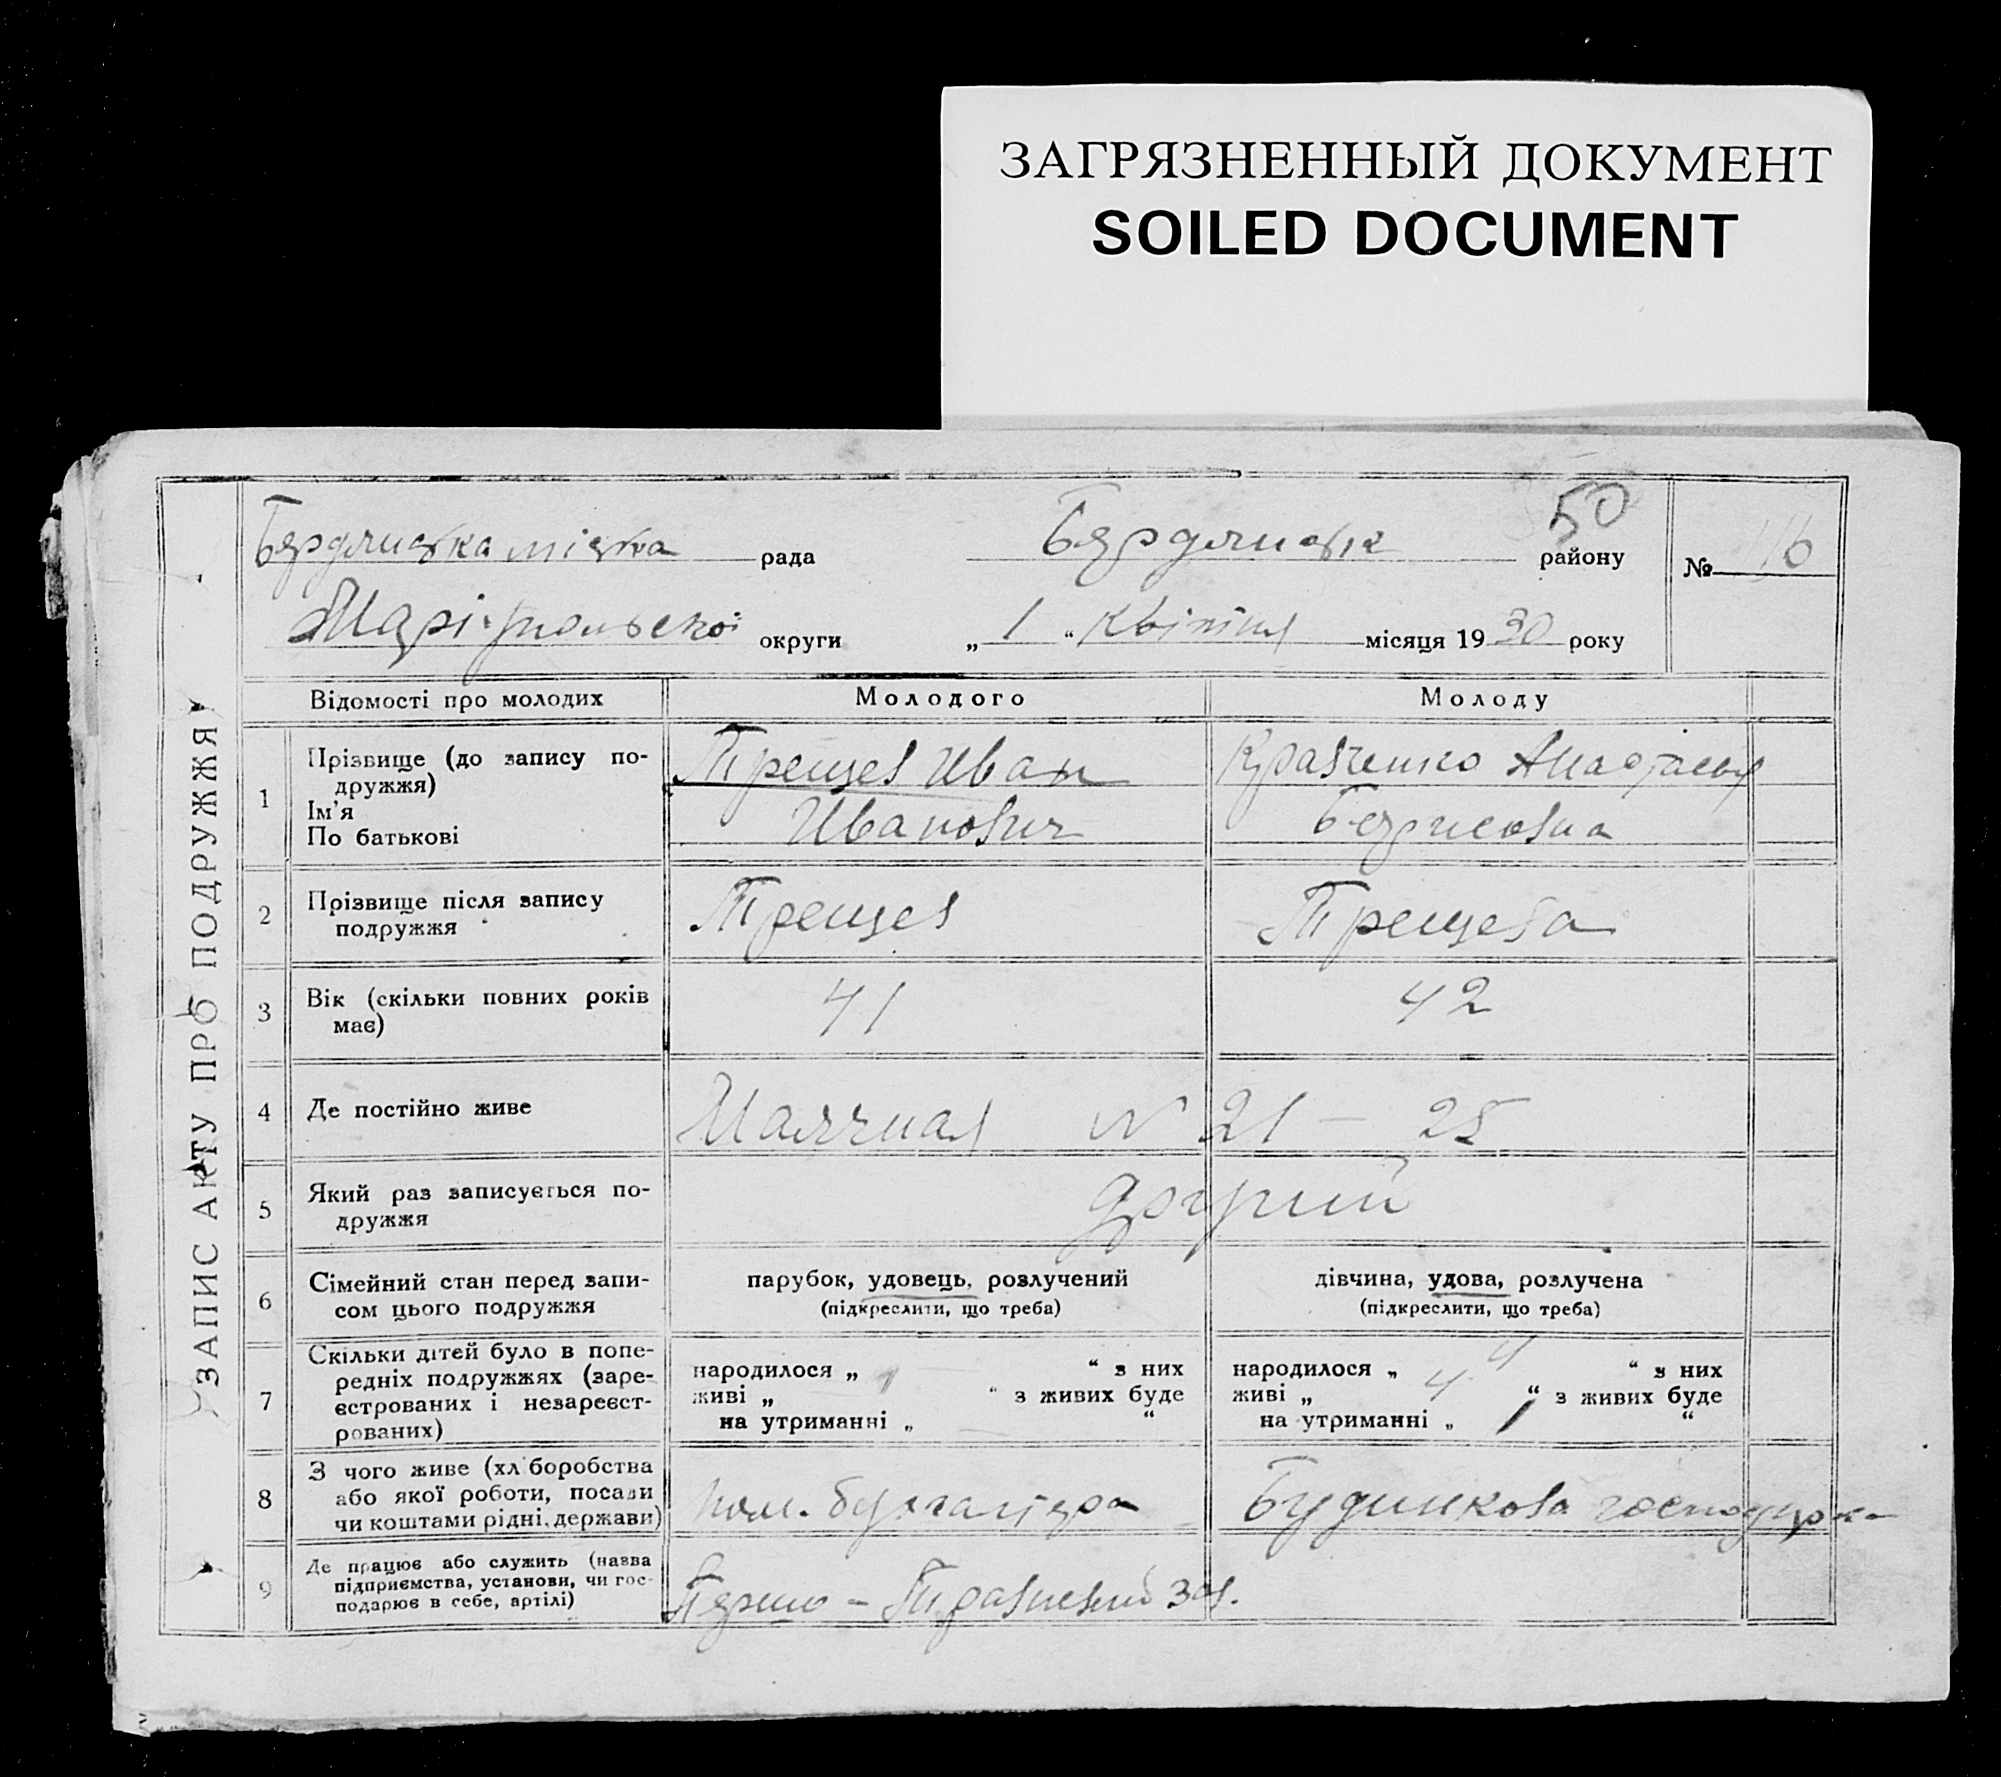 ЗАГРЯЗНЕННЫЙ ДОКУМЕНТ
SOILED DOCUMENT
ЗАПИС АКТУ ПРО ПОДРУЖЖЯ
50
Бердянська міська рада Бердянськ району №
Маріупольської округи „ 1 “ Квітня місяця 1930 року
Відомості про молодих Молодого Молоду
1 Прізвище (до запису подружжя) Трещев Иван Кравченко Анастасья
Ім'я
По батькові Иванович Борисовна
2 Прізвище після запису подружжя Трещев Трещева
3 Вік (скільки повних років має) 41 42
4 Де постійно живе N 21 — 25
5 Який раз записується подружжя другий
6 Сімейний стан перед записом цього подружжя парубок, удовець, розлучений дівчина, удова, розлучена
(підкреслити, що треба) (підкреслити, що треба)
7 Скільки дітей було в попередніх подружжях (зареєстрованих і незареєстрованих)
народилося „ “ з них народилося „ 4 “ з них
живі „ “ з живих буде живі „ 4 “ з живих буде
на утриманні „ “ на утриманні „ 1 “
8 З чого живе (хліборобства або якої роботи, посади чи коштами рідні, держави) пом. бухгалтера Будинкова господарка
9 Де працює або служить (назва підприємства, установи, чи господарює в себе, артілі) Першо-Травневий зав.